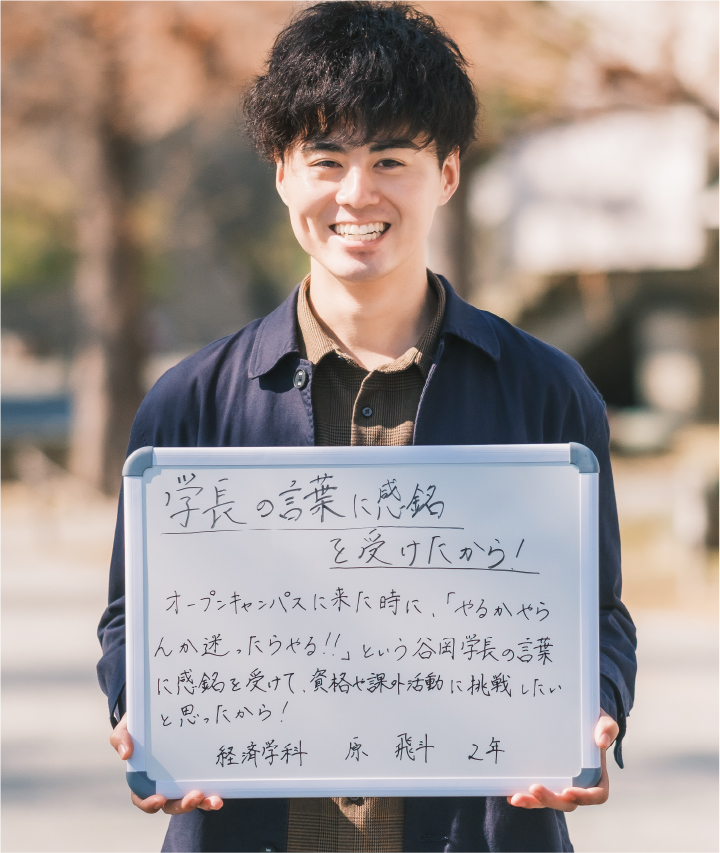 学長の言葉に感銘
を受けたから!
オープンキャンパスに来た時に、「やるかやら
んか迷ったらやる!!」という谷岡学長の言葉
に感銘を受けて、資格や課外活動に挑戦したい
と思ったから!
経済学科 原 飛斗 2年